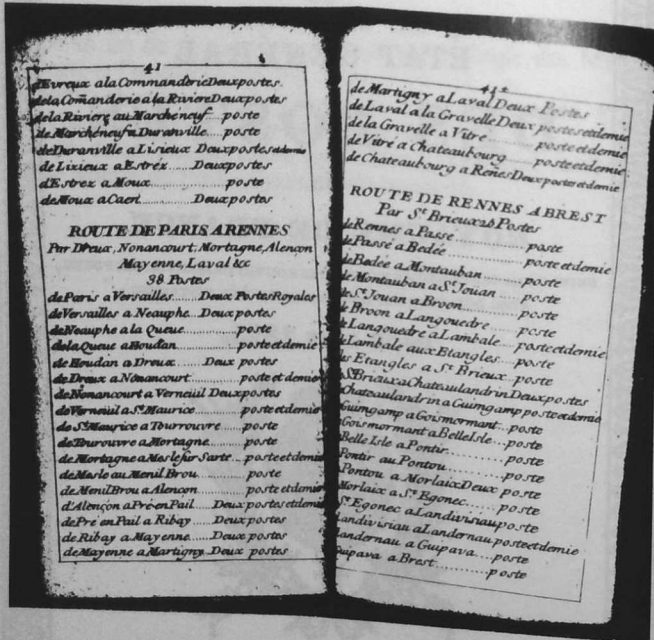 41
d'Evreux a la Commanderie Deux postes
de la Comanderie a la Riviere Deux postes
de la Riviere au Marcheneuf poste
de Marcheneuf a Duranville poste
de Duranville a Lisieux Deux postes et demie
de Lizieux a Estréz Deux postes
d'Estrez a Moux poste
de Moux a Caen Deux postes
ROUTE DE PARIS A RENNES
Par Dreux, Nonancourt, Mortagne, Alençon
Mayenne, Laval &c
38 Postes
de Paris a Versailles Deux Postes Royales
de Versailles a Neauphe Deux postes
de Neauphe a la Queue poste
de la Queue a Houdan poste et demie
de Houdan a Dreux Deux postes
de Dreux a Nonancourt poste et demie
de Nonancourt a Verneuil Deux postes
de Verneuil a St. Maurice poste et demie
de St. Maurice a Tourrouvre poste
de Tourouvre a Mortagne poste
de Mortagne a Mesle sur Sarte poste et demie
de Mesle au Menil Brou poste
de Menil Brou a Alençon poste et demie
d'Alençon a Pré en Pail Deux postes et demie
de Pré en Pail a Ribay Deux postes
de Ribay a Mayenne Deux postes
de Mayenne a Martigny Deux postes
de Martigny a Laval Deux Postes
de Laval a la Gravelle Deux postes et demie
de la Gravelle a Vitré poste et demie
de Vitré a Chateaubourg poste et demie
de Chateaubourg a Renes Deux postes et demie
ROUTE DE RENNES A BREST
Par St. Brieux 26 Postes
de Rennes a Passé poste
de Passé a Bedée poste et demie
de Bedée a Montauban poste
de Montauban a St. Jouan poste
de St. Jouan a Broon poste
de Broon a Langouedre poste
de Langouedre a Lambale poste et demie
de Lambale aux Etangles poste
des Etangles a St. Brieux poste
St. Brieux a Chateaulandrin Deux postes
Chateaulandrin a Guimgamp poste et demie
Guimgamp a Goismormant poste
Goismormant a Belle Isle poste
Belle Isle a Pontir poste
Pontir au Pontou poste
Pontou a Morlaix Deux poste
Morlaix a St. Egonec poste
St. Egonec a Landivisiau poste
Landivisiau a Landernau poste et demie
Landernau a Guipava poste
Guipava a Brest poste